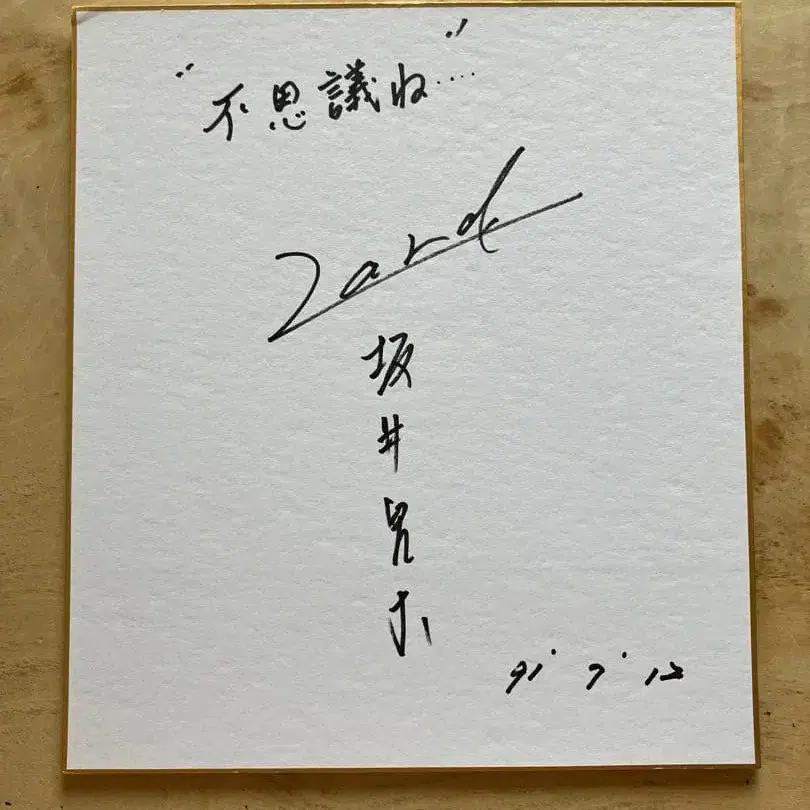 "不思議ね‥‥"
Zard
坂井泉水
91' 7' 12